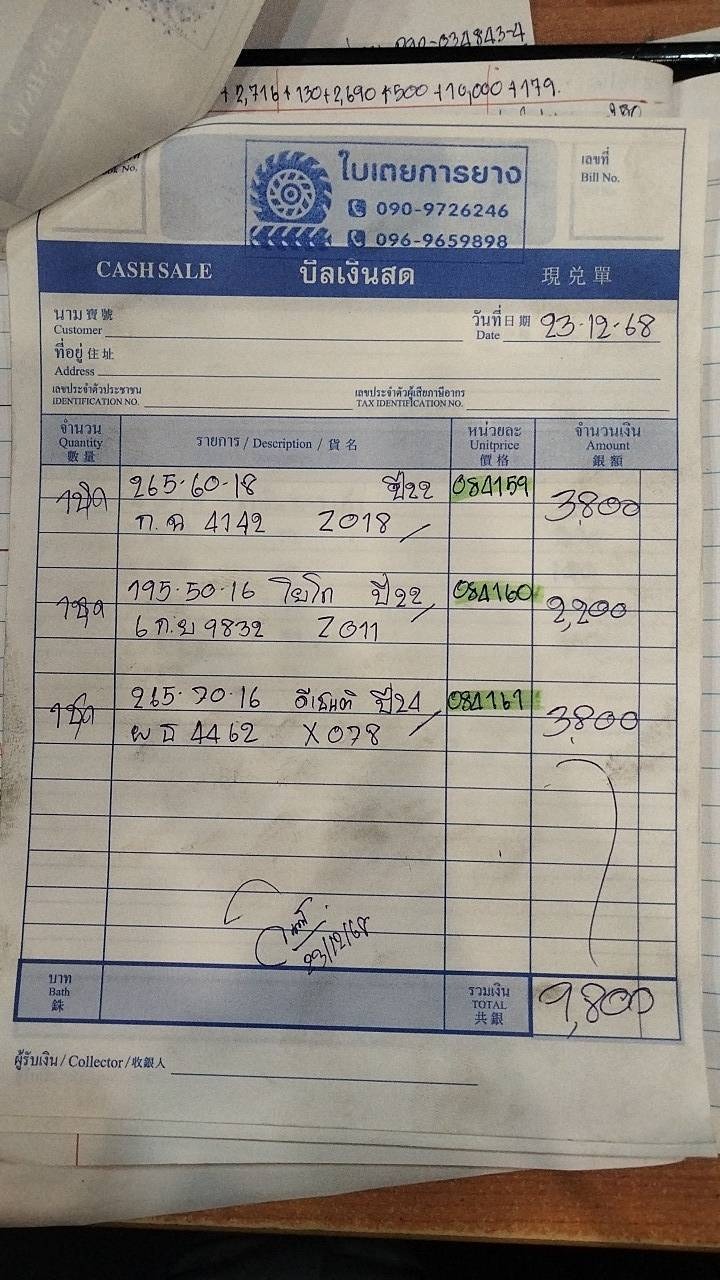 090-034843-4
+2,716+130+2,690+500+10,000+179.
ใบเตยการยาง
090-9726246
096-9659898
Book No.
เลขที่
Bill No.
CASH SALE บิลเงินสด 現兑單
นาม 寶號
Customer
วันที่ 日期 23-12-68
Date
ที่อยู่ 住址
Address
เลขประจำตัวประชาชน
IDENTIFICATION NO.
เลขประจำตัวผู้เสียภาษีอากร
TAX IDENTIFICATION NO.
จำนวน
Quantity
數量
รายการ / Description / 貨名
หน่วยละ
Unitprice
價格
จำนวนเงิน
Amount
銀額
1ชุด 265-60-18 ปี22 084159 3,800
4142 2018
1ชุด 195-50-16 ปี22 084160 2,200
6 กย 9832 2011
1ชุด 265-70-16 ปี24 084161 3,800
ผธ 4462 X078
23/12/68
บาท
Bath
銖
รวมเงิน
TOTAL
共銀
9,800
ผู้รับเงิน / Collector / 收銀人